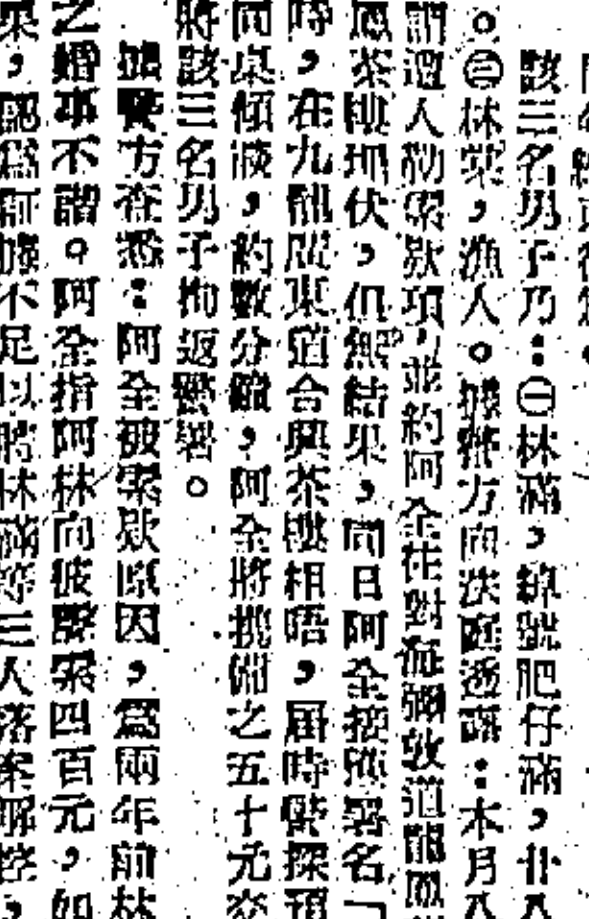 該三名男子乃：㊀林滿，綽號肥仔滿，廿八
。㊂林棠，漁人。據警方向法庭透露：本月八
謂遭人勒索欵項，並約阿全往對海彌敦道龍鳳
鳳茶樓埋伏，但無結果，同日阿全接獲署名「
時，在九龍廣東道合興茶樓相晤，屆時警探預
同桌傾談，約數分鐘，阿全將挑備之五十元交
將該三名男子拘返警署。
據警方查悉：阿全被索欵原因，爲兩年前林
之婚事不諧。阿全指阿林向彼索四百元，如
果，認爲証據不足以將林滿等三人落案解控，